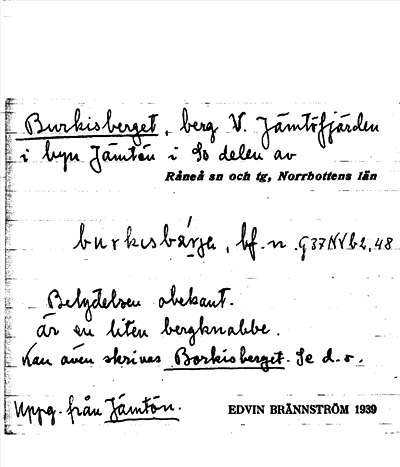 Burkisberget, berg V. Jämtöfjärden
i byn Jämtön i So delen av
Råneå sn och tg, Norrbottens län
burkisbärja, bf. n. G37NVb2,48
Betydelsen obekant.
är en liten bergknabbe.
Kan även skrivas Borkisberget. Se d. o.
Uppg. från Jämtön.
EDVIN BRÄNNSTRÖM 1939